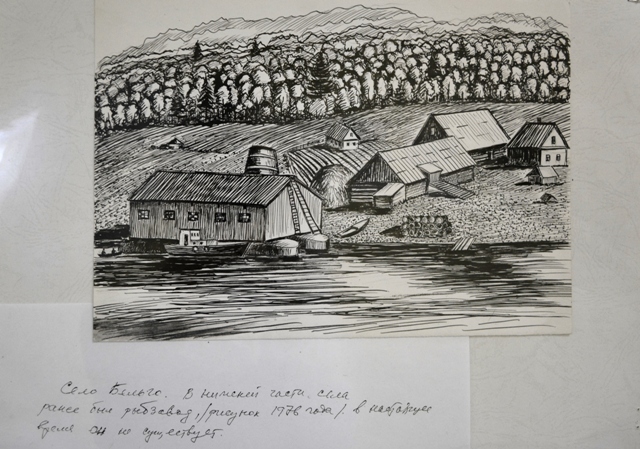 Село Бельго. В нижней части села
ранее был рыбзавод, /рисунок 1976 года/. в настоящее
время он не существует.